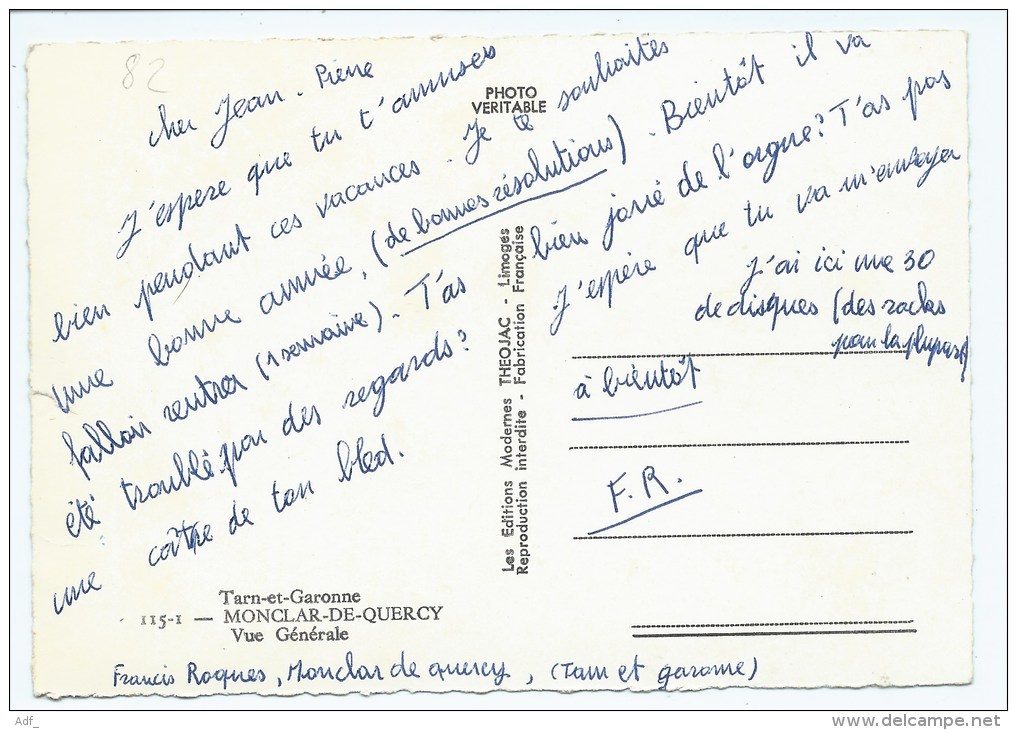 82
cher Jean-Pierre
J'espere que tu t'amuses
bien pendant ces vacances. Je te souhaites
une bonne année, (de bonnes résolutions). Bientôt il va
falloir rentrer (1 semaine). T'as bien joué de l'orgue? T'as pas
été troublé par des regards? J'espére que tu va m'envoyer
une de ton bled.
J'ai ici une 30
de disques (des rocks
pour la plupart)
à bientôt
F.R.
PHOTO
VERITABLE
Les Editions Modernes THEOJAC - Limoges
Reproduction interdite - Fabrication Française
Tarn-et-Garonne
115-1 — MONCLAR-DE-QUERCY
Vue Générale
Francis Roques, Monclar de quercy, (Tarn et garonne)
Adf_
www.delcampe.net